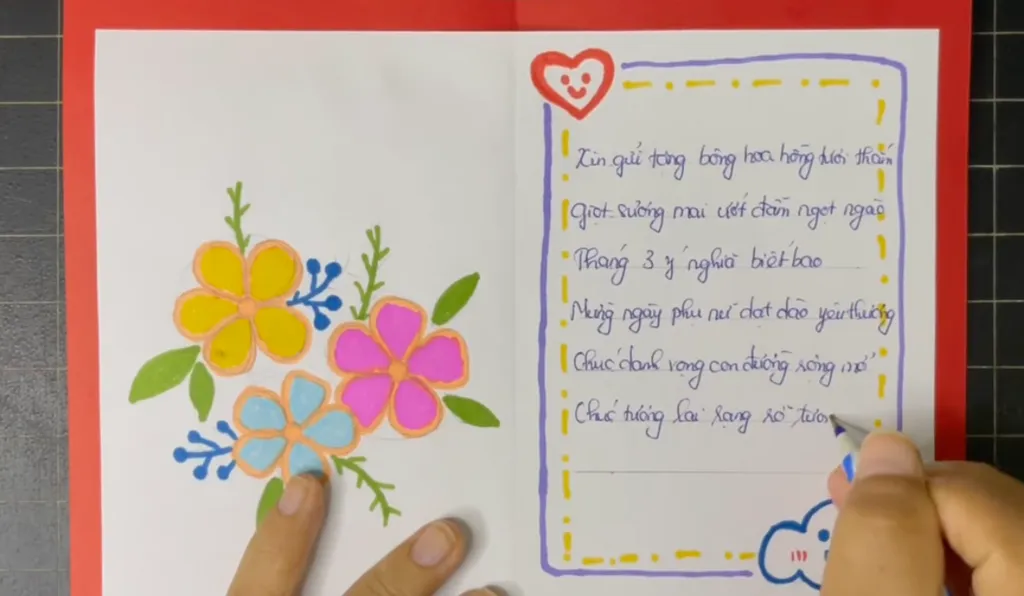 Xin gửi từng bông hoa hồng tươi thắm
Giọt sương mai ướt đẫm ngọt ngào
Tháng 3 ý nghĩa biết bao
Mừng ngày phụ nữ dạt dào yêu thương
Chúc danh vọng con đường rộng mở
Chúc tương lai rạng rỡ